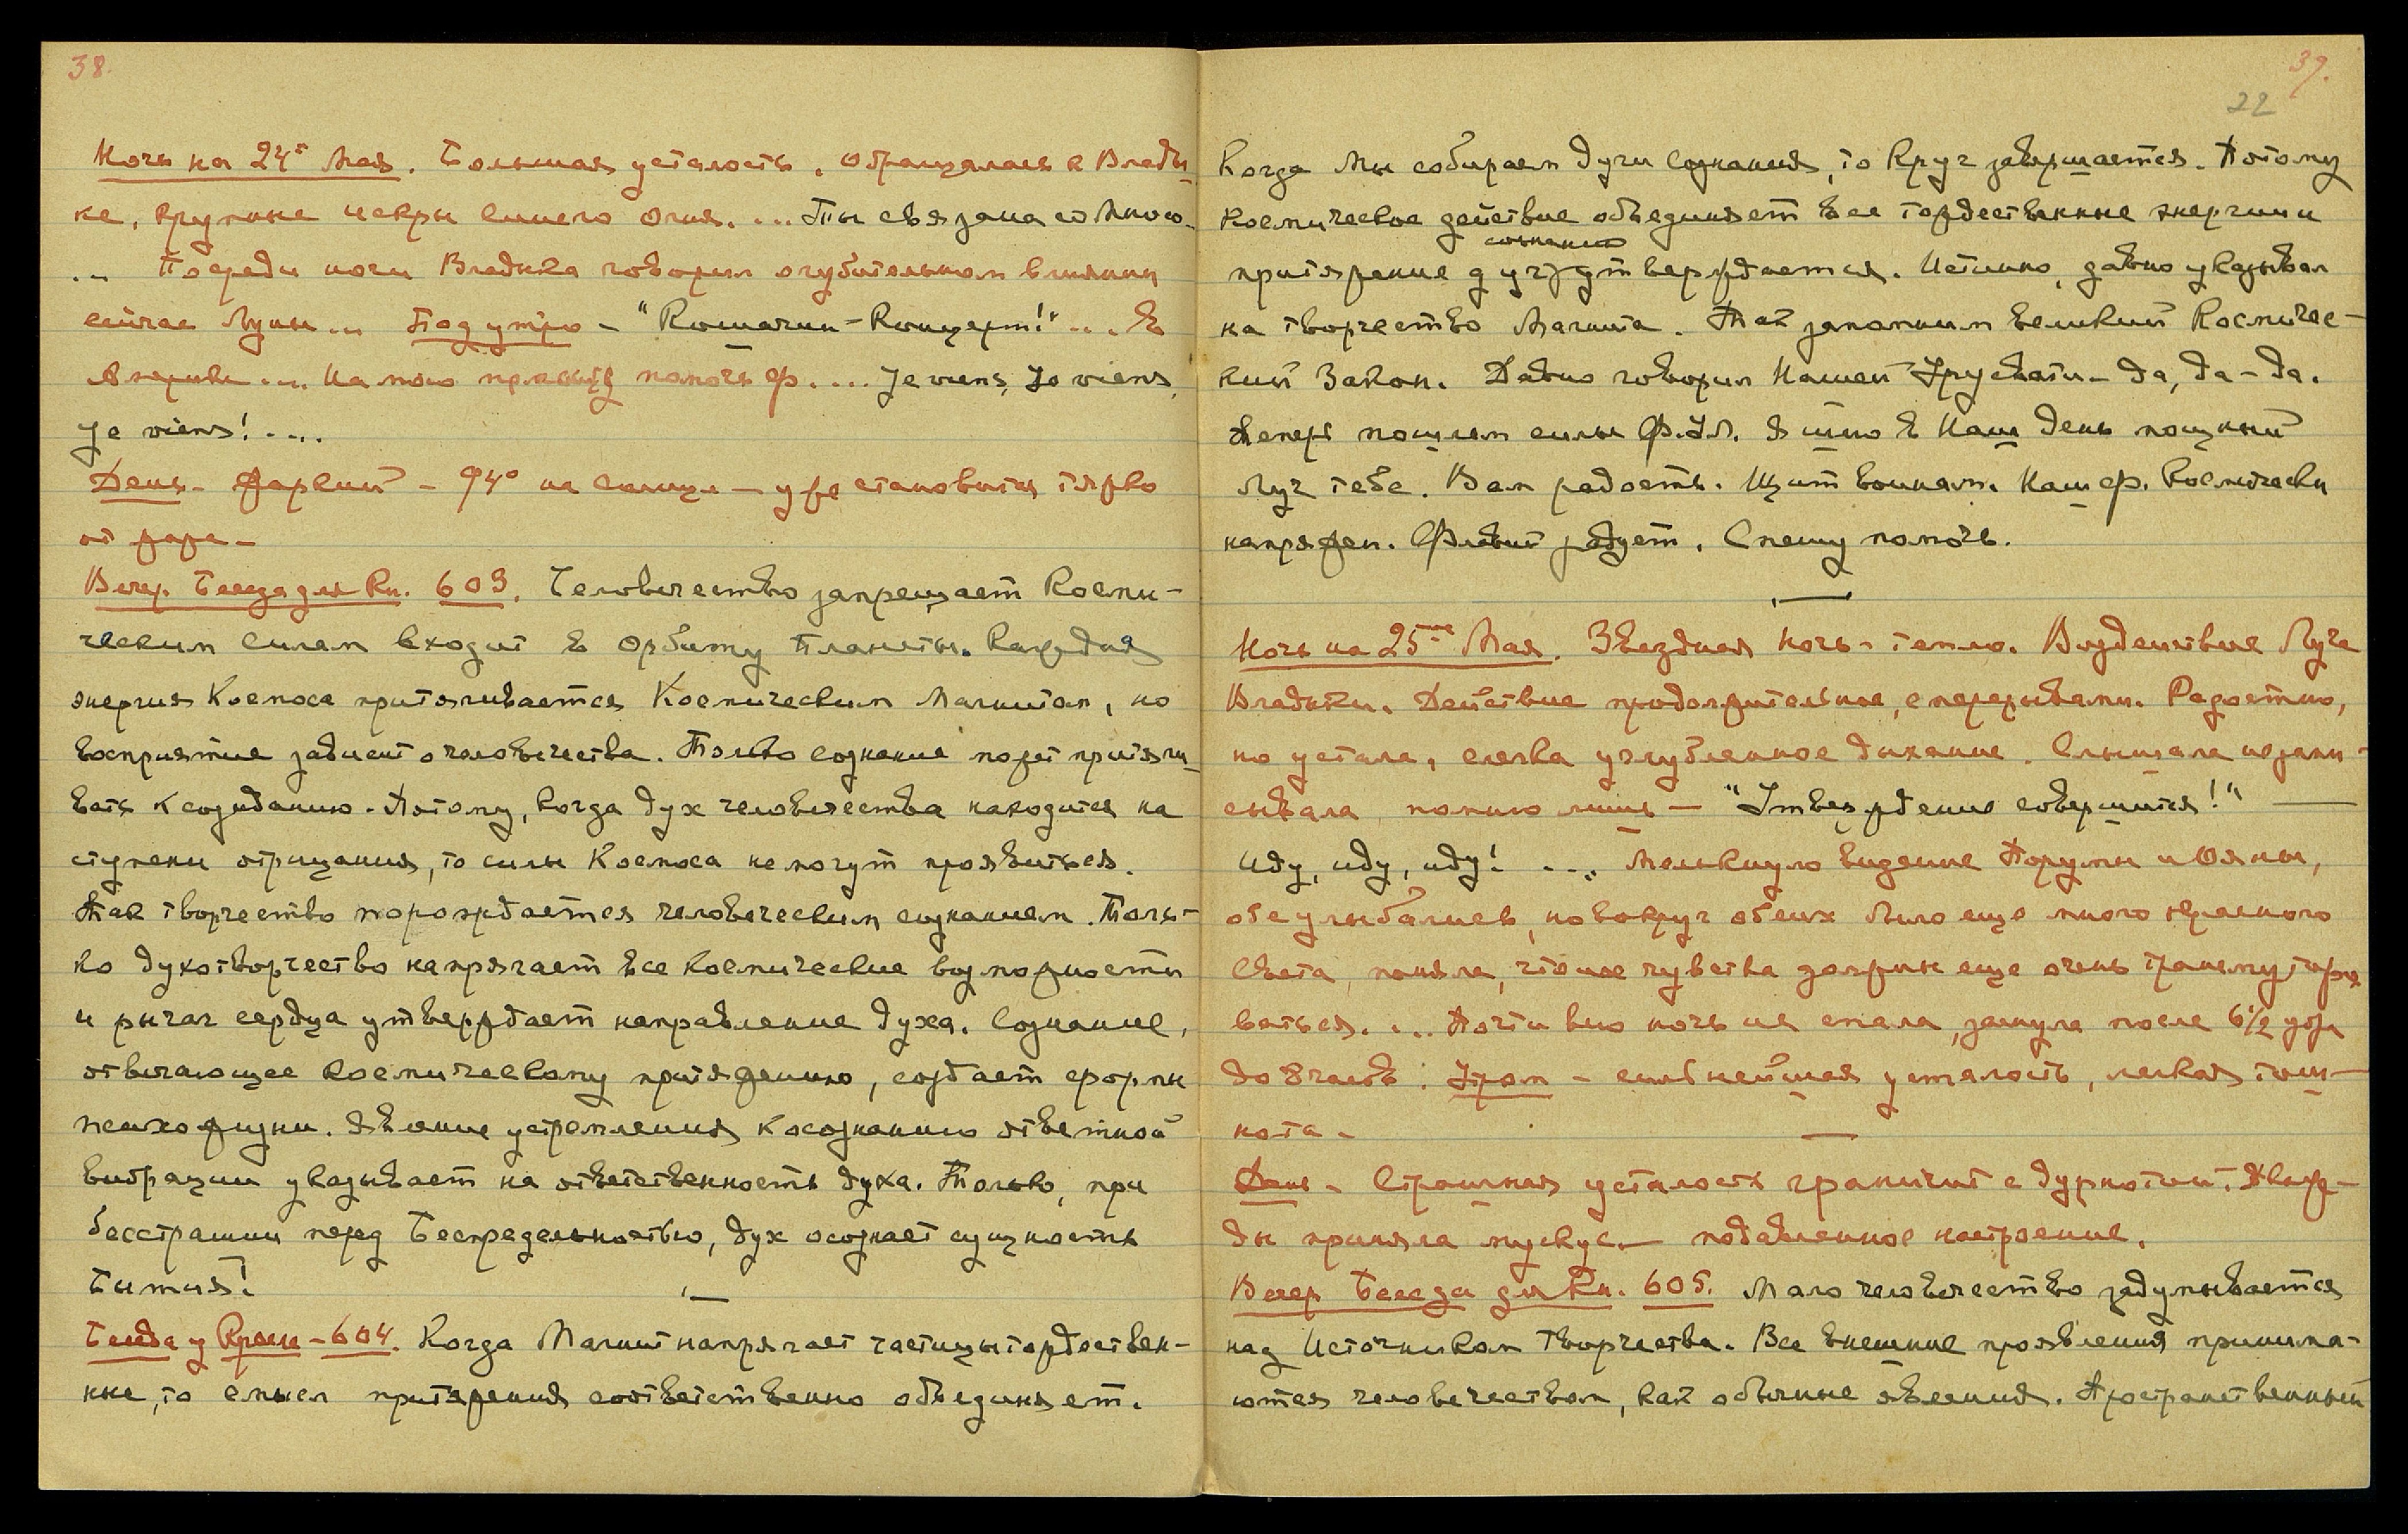 38.
Ночь на 24ое Мая. Большая усталость. Обращалась к Влады-
ке, крупные искры синего огня. ... Ты связана со Мною.
... Посреди ночи Владыка говорил о губительном влиянии
сейчас Луны... Под утро – "Кошачий-Концерт!" ... В
... На мою помочь Ф. ... Je viens, Je viens,
Je viens! ....
День – Жаркий – 94° на солнце – уже становится тяжко
от жара –
Вечер. Беседа для Кн. 603. Человечество запрещает Косми-
ческим силам входит в Орбиту Планеты. Каждая
энергия Космоса притягивается Космическим Магнитом, но
восприятие зависит о человечества. Только сознание может притяги-
вать к созиданию. Потому, когда дух человечества находится на
ступени отрицания, то силы Космоса не могут проявиться.
Так творчество порождается человеческим сознанием. Толь-
ко духотворчество напрягает все космические возможности
и рычаг сердца утверждает направление духа. Сознание,
отвечающее космическому притяжению, создает формы
психожизни. Явление устремления к осознанию ответной
вибрации указывает на ответственность духа. Только, при
бесстрашии перед Беспредельностью, дух осознает сущность
Бытия!
Беседа у Кресла – 604. Когда Магнит напрягает частицы тождествен-
ные, то смысл притяжения соответственно объединяет.
39.
22
Когда Мы собираем духи сознания, то Круг завершается. Потому
космическое действие объединяет все тождественные энергии и
сознанию
притяжение утверждается. Истинно, давно указывал
на творчество Магнита. Так запомним великий Космичес-
кий Закон. Давно говорил Нашей Урусвати – да, да – да.
Теперь пошлем силы Ф. Ул. Я шлю в Наш день мощный
Луч тебе. Вам радость. Щит воинам. Наш Ф. Космически
напряжен. Флавий ждет. Спешу помочь.
Ночь на 25ое Мая. Звездная ночь – тепло. Воздействие Луча
Владыки. Действие продолжительное, с перерывами. Радостно,
но устала, слегка углубленное дыхание. Слышала незапи-
сывала помню лишь – "Утверждение совершится!" —
Иду, иду, иду! .... Мелькнуло видение Порумы и Ояны,
обе улыбались, но вокруг обеих было еще много красного
света, поняла, что мое чувства должны еще очень
ваться. ... Почти всю ночь не спала, заснула после 6½ утра
до 8 часов. Утром – сильнейшая усталость, легкая тош-
нота –
День – Страшная усталость граничит с дурнотой. Дваж-
ды приняла мускус – подавленное настроение.
Вечер Беседа для Кн. 605. Мало человечество задумывается
над Источником творчества. Все внешние проявления принима-
ются человечеством, как обычные явления. Пространственный